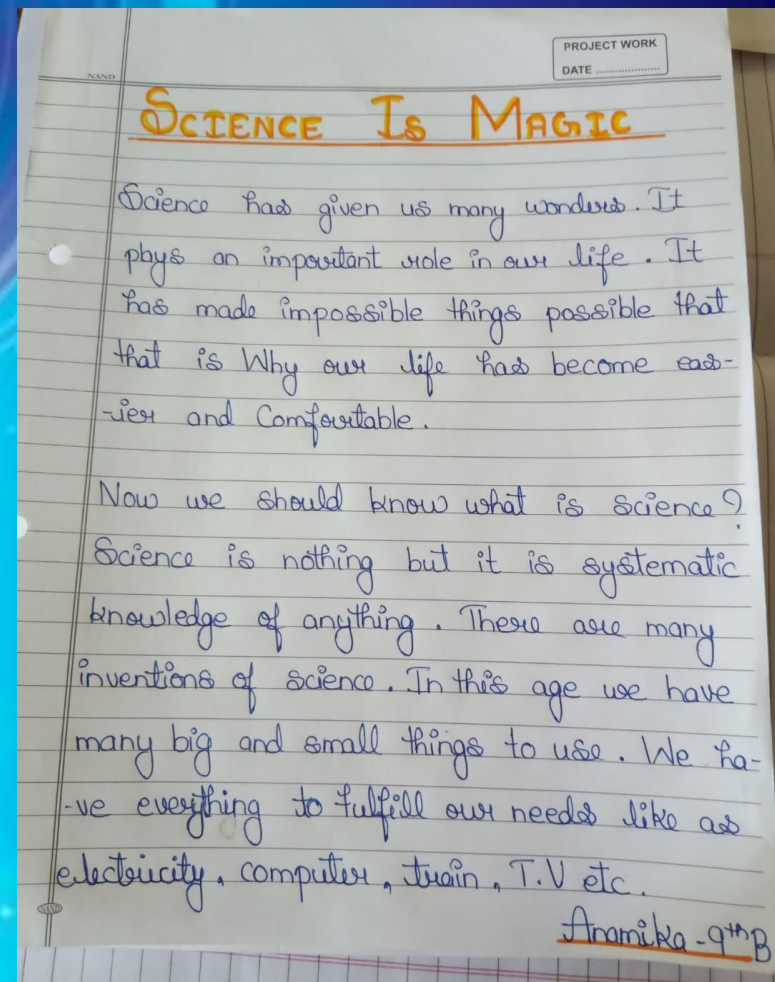 PROJECT WORK
DATE ....................
NAND
SCIENCE IS MAGIC
Science has given us many wonders. It
plays an important role in our life. It
has made impossible things possible that
that is Why our life has become eas-
-ier and Comfortable.
Now we should know what is science?
Science is nothing but it is systematic
knowledge of anything. There are many
inventions of science. In this age we have
many big and small things to use. We ha-
-ve everything to fulfill our needs like as
electricity, computer, train, T.V etc.
NAND
Anamika - 9th B